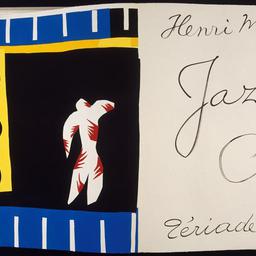 Henri M
Jaz
Tériade